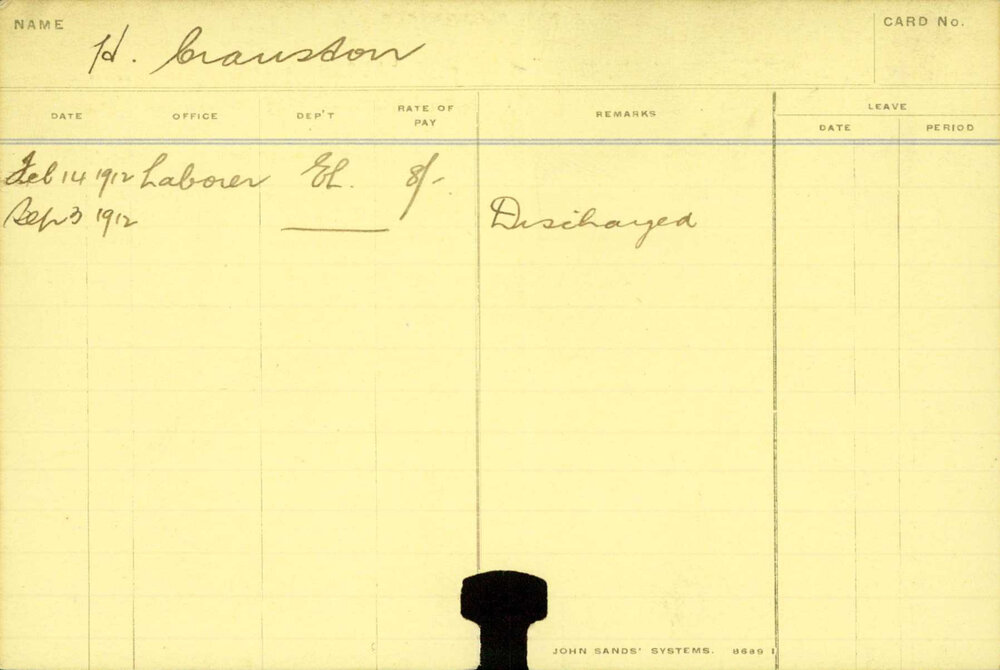 NAME
H. Cranston
CARD No.
DATE OFFICE DEP'T RATE OF PAY REMARKS LEAVE
DATE PERIOD
Feb 14 1912 Laborer EL. 8/-
Sep 3 1912 Discharged
JOHN SANDS' SYSTEMS. 8689